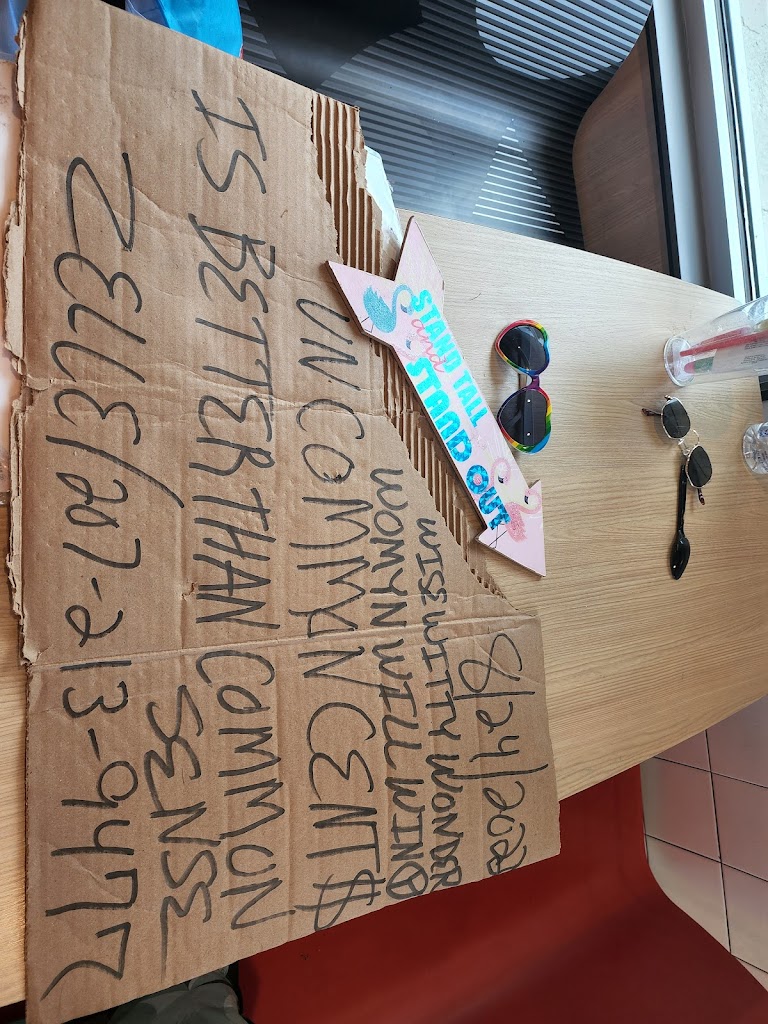 8/24/2022
WISE WITTY WONDER
WOMYN WILL WIN
UNCOMMUN CENT$
IS BETTER THAN COMMUN
SENSE
ZELLIE/207-213-9477
STAND TALL
and
STAND OUT